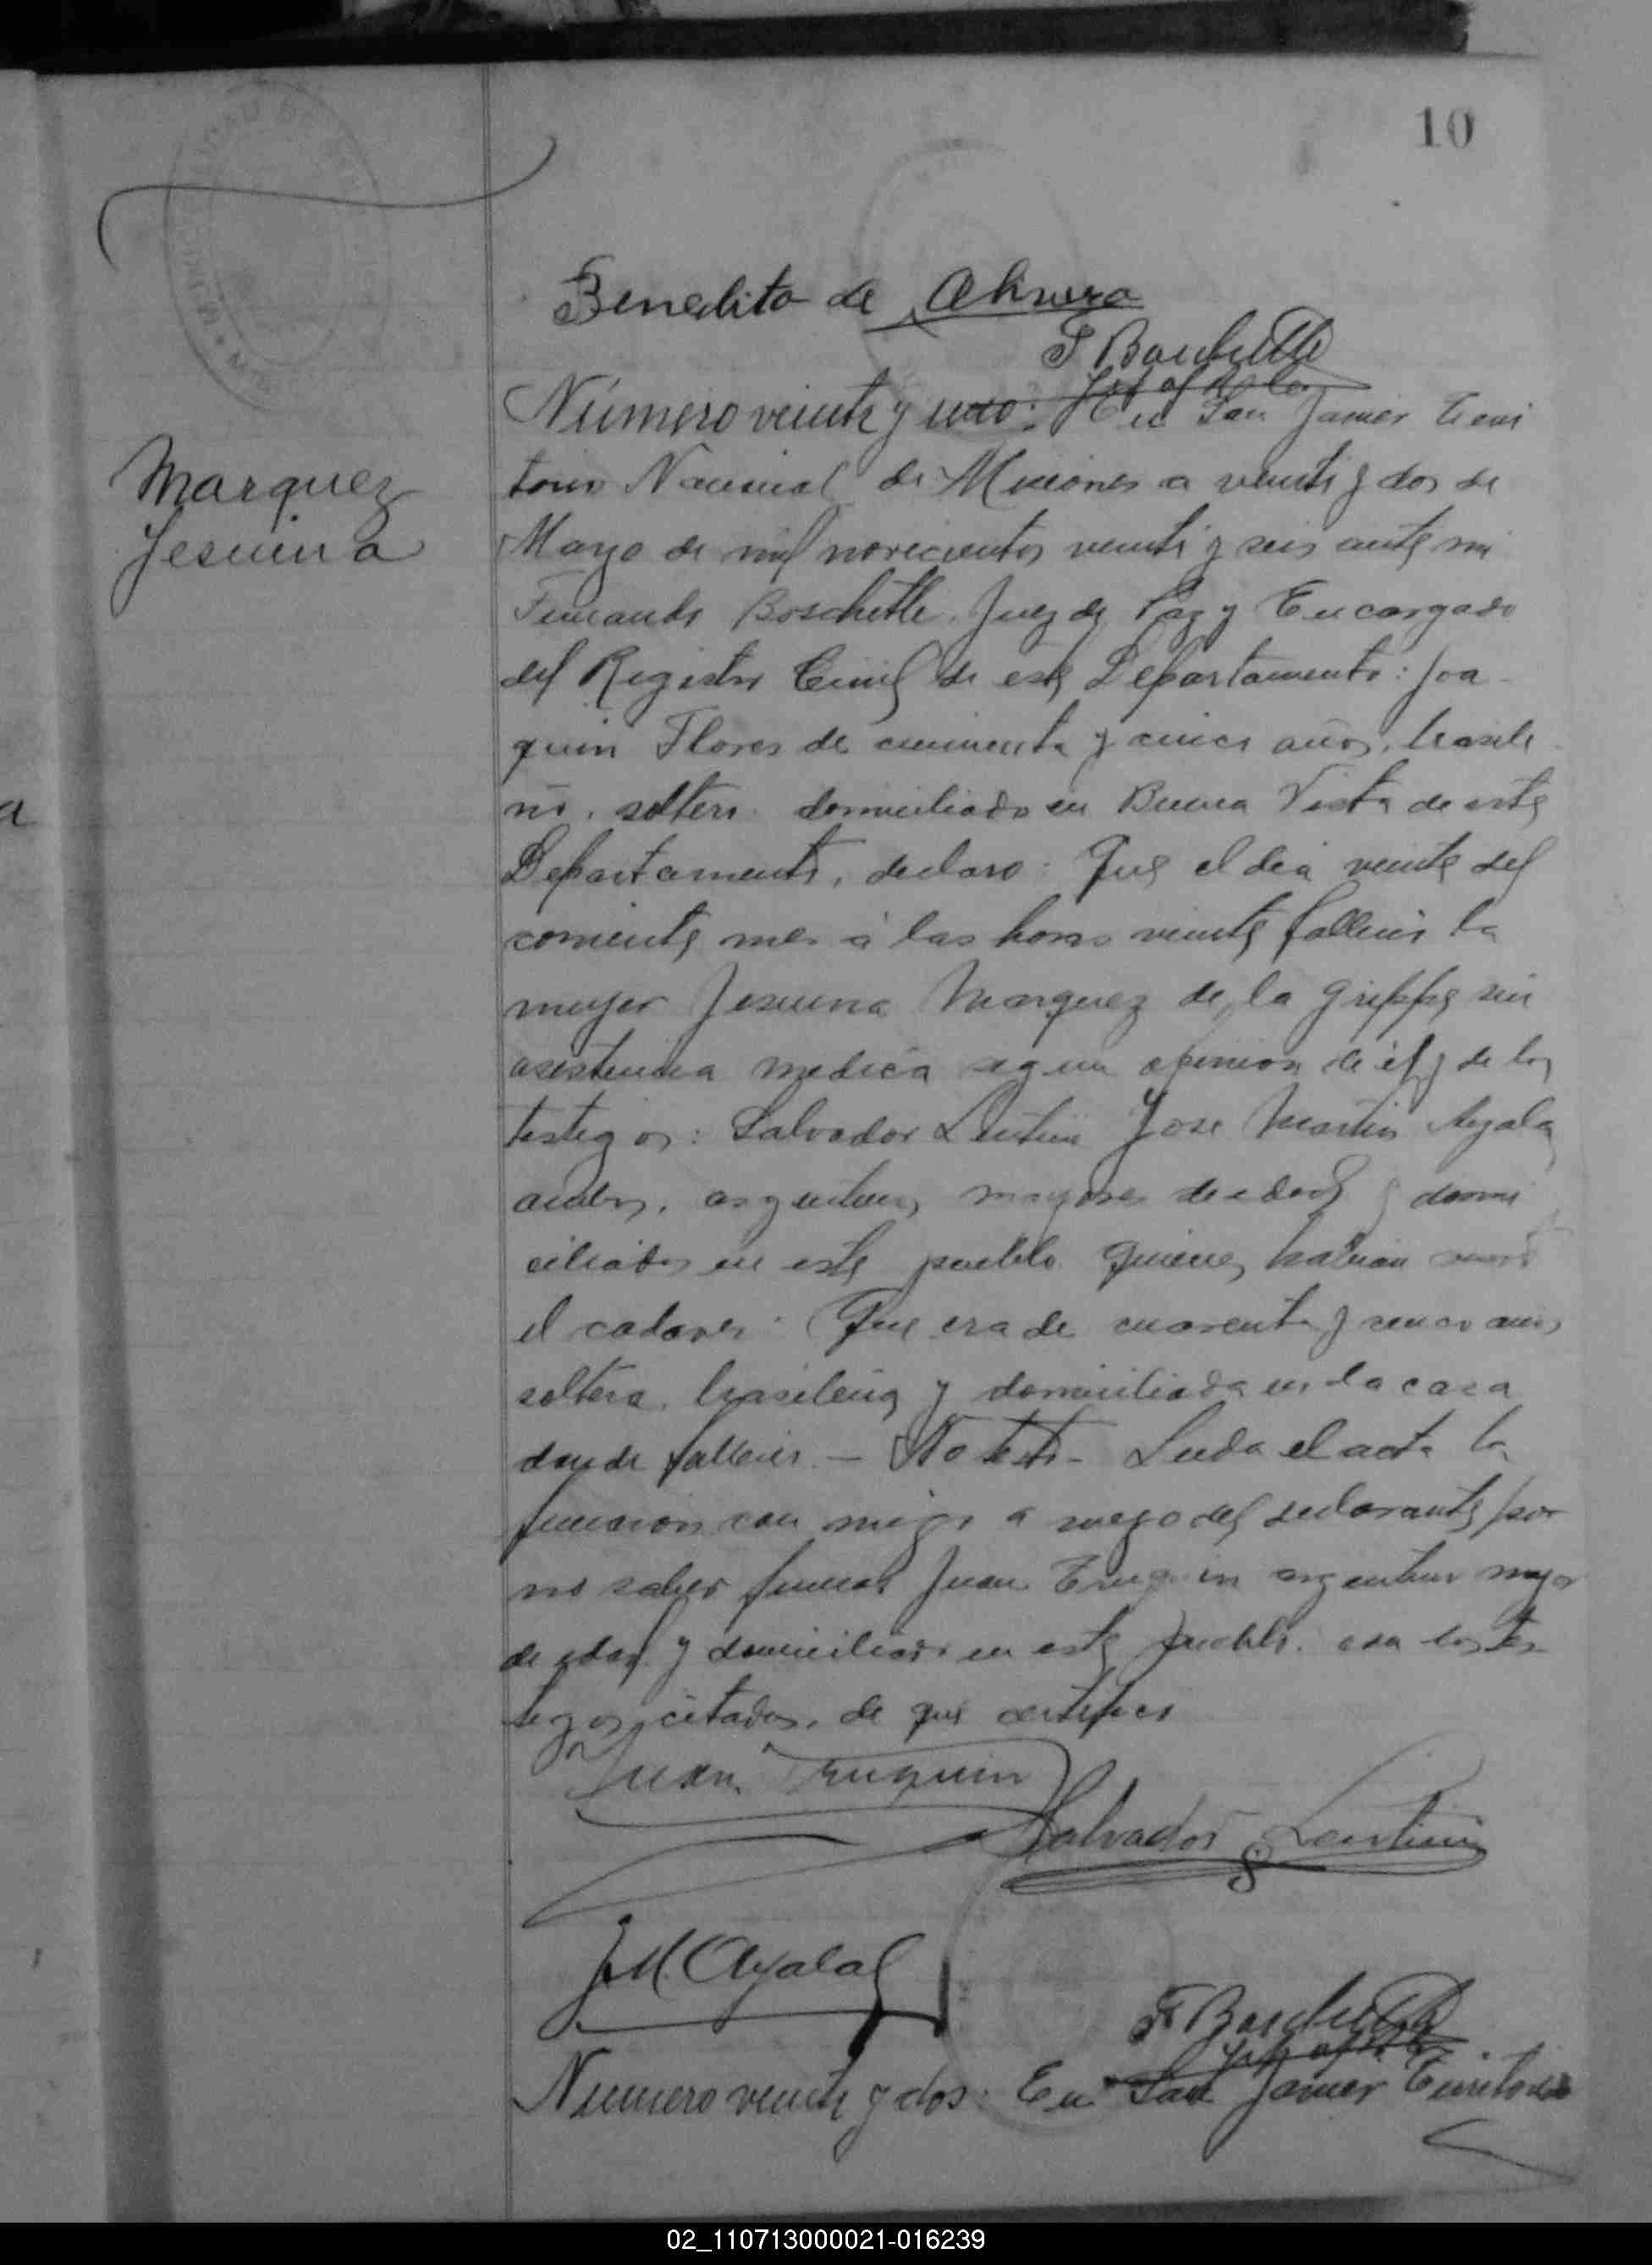 10
Benedito de
F Boschetti
Número veinte y uno: En San Javier Terri
torio Nacional de Misiones a veinte y dos de
Marquez
Jesuina
Mayo de mil novecientos veinte y seis ante mi
Fernando Boschetti, Juez de Paz y Encargado
del Registro Civil de este Departamento: Joa
quin Flores de cincuenta y cinco años, brasile
ño, soltero domiciliado en Buena Vista de este
Departamento, declaro: Que el dia veinte del
corriente mes á las horas veinte falleció la
mujer Jesuina Marquez de la grippe sin
asistencia medica segun opinion de él y de los
testigos: Salvador Lentini Jose Martin Ayala
ambos, argentinos, mayores de edad y domi
ciliados en este pueblo quienes habian
el cadaver. Que era de cuarenta y cinco años
soltera, brasileña y domiciliada en la casa
donde falleció. — No testó - Leida el acta la
firmaron con migo a ruego del declarante por
no saber firmar Juan Truquin argentino mayor
de edad y domiciliado en este pueblo. con los tes
tigos citados, de que certifico
Juan Truquin
Salvador Lentini
J M. Ayala
F Boschetti
Numero veinte y dos: En San Javier Territorio
02_110713000021-016239